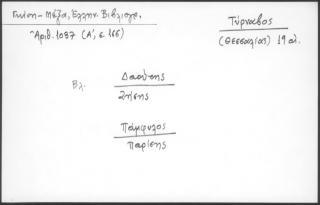 Γκίνη - Μέξα, Ελλην. Βιβλιογρ.
Ἀριθ. 1087 (Α', σ. 166)
Τύρναβος
(Θεσσαλίας) 19 αἰ.
Βλ.
Δαούτης
Ζήσης
Πάμφυλος
Παρίσης